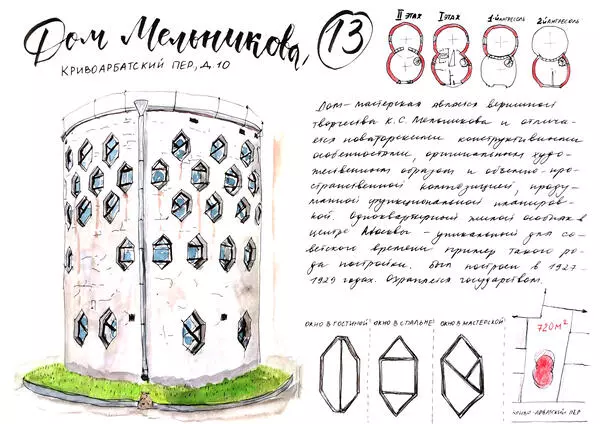 Дом Мельникова,
13
КРИВОАРБАТСКИЙ ПЕР, Д. 10
II ЭТАЖ
I ЭТАЖ
1-Й АНТРЕСОЛЬ
2-Й АНТРЕСОЛЬ
Дом-мастерская является вершиной
творчества К.С. Мельникова и отлича-
ется новаторскими конструктивными
особенностями, оригинальным худо-
жественным образом и объемно-про-
странственной композицией, проду-
манной функциональной планиров-
кой. Одноквартирный жилой особняк в
центре Москвы - уникальный для со-
ветского времени пример такого ро-
да постройки. Был построен в 1927-
1929 годах. Охраняется государством.
ОКНО В ГОСТИНОЙ
ОКНО В СПАЛЬНЕ
ОКНО В МАСТЕРСКОЙ
720 М²
КРИВО-АРБАТСКИЙ ПЕР